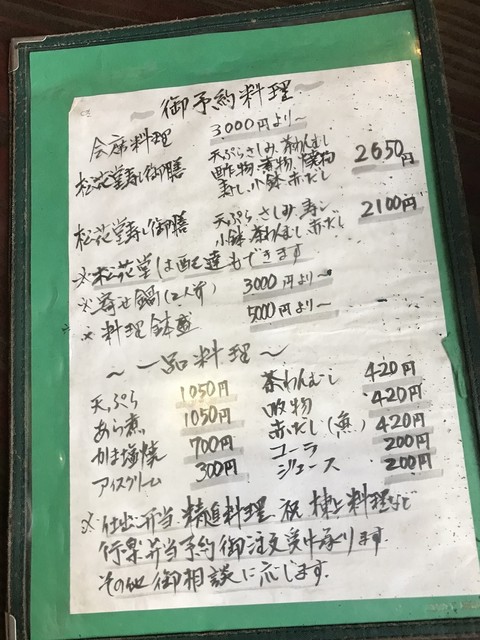 ～ 御予約料理 ～
会席料理 3000円より～
松花堂寿し御膳 天ぷらさしみ、茶わんむし
酢物、煮物、焼物 2650円
寿し、小鉢、赤だし
松花堂寿し御膳 天ぷら、さしみ、寿し 2100円
小鉢、茶わんむし、赤だし
※松花堂は配達もできます
※寄せ鍋(2人前) 3000円より～
※料理鉢盛 5000円より～
～一品料理～
天ぷら 1050円 茶わんむし 420円
あら煮 1050円 吸物 420円
かま塩焼 700円 赤だし(魚) 420円
アイスクリーム 300円 コーラ 200円
ジュース 200円
※仕出弁当、精進料理、祝、棟上料理など
行楽弁当予約御注文受け承ります。
その他御相談に応じます。